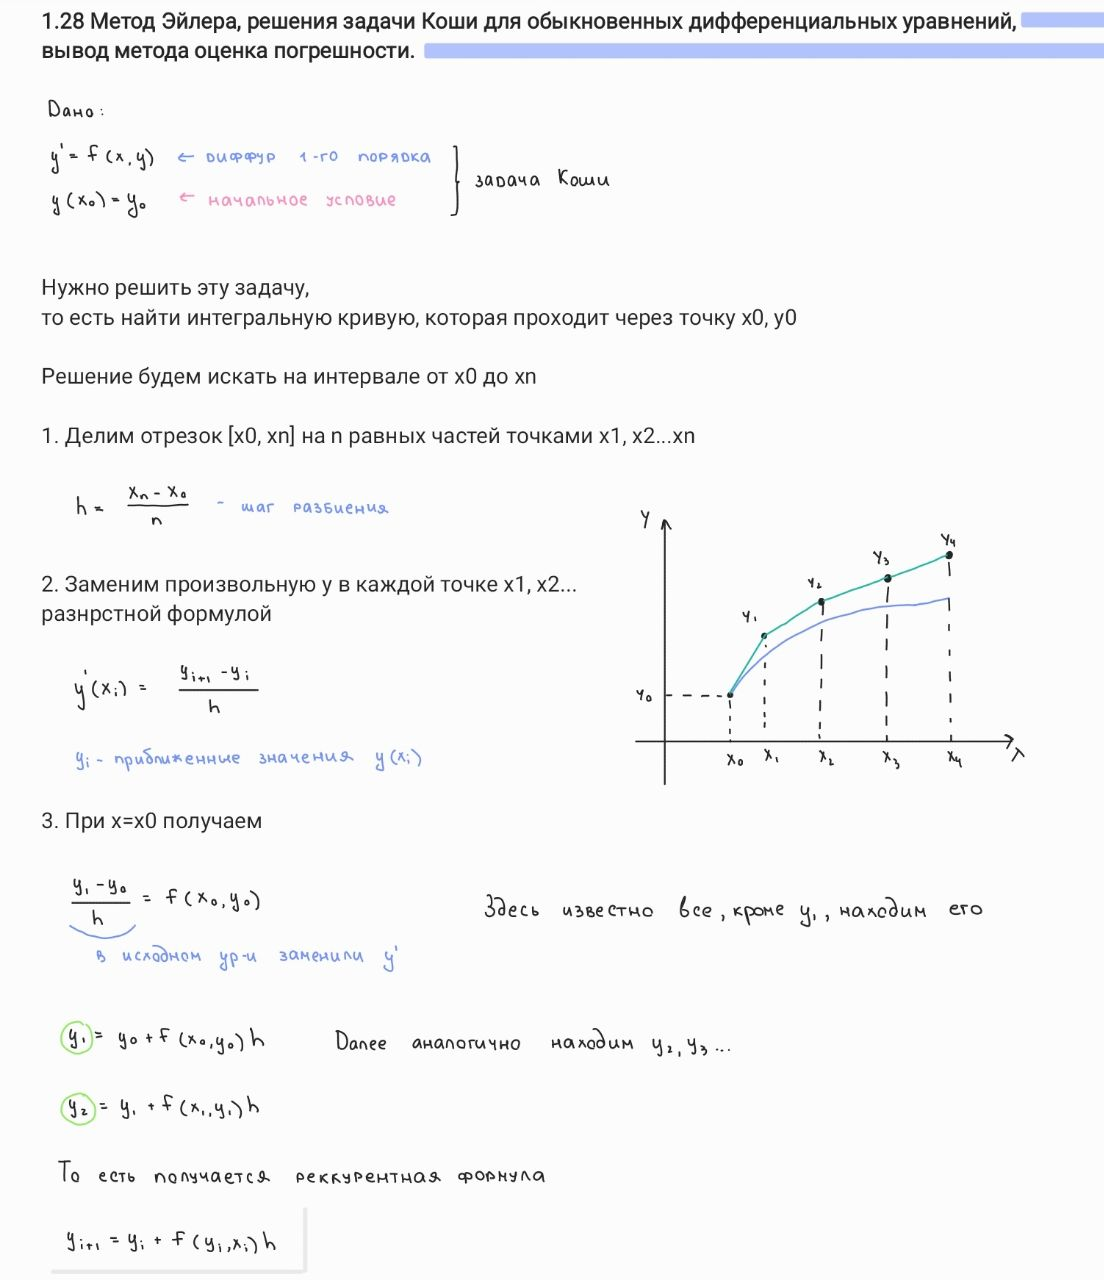 1.28 Метод Эйлера, решения задачи Коши для обыкновенных дифференциальных уравнений,
вывод метода оценка погрешности.
Дано:
y' = f(x, y) ← диффур 1-го порядка
y(x₀) = y₀ ← начальное условие
задача Коши
Нужно решить эту задачу,
то есть найти интегральную кривую, которая проходит через точку x0, y0
Решение будем искать на интервале от x0 до xn
1. Делим отрезок [x0, xn] на n равных частей точками x1, x2...xn
h = (xₙ - x₀)/n - шаг разбиения
2. Заменим произвольную y в каждой точке x1, x2...
разнрстной формулой
y'(xᵢ) = (yᵢ₊₁ - yᵢ)/h
yᵢ - приближенные значения y(xᵢ)
Y
Y₁
Y₂
Y₃
Y₄
Y₀
X₀ X₁ X₂ X₃ X₄
3. При x=x0 получаем
(y₁ - y₀)/h = f(x₀, y₀)
Здесь известно все, кроме y₁, находим его
в исходном ур-и заменили y'
y₁ = y₀ + f(x₀, y₀)h
Далее аналогично находим y₂, y₃...
y₂ = y₁ + f(x₁, y₁)h
То есть получается реккурентная формула
yᵢ₊₁ = yᵢ + f(yᵢ, xᵢ)h